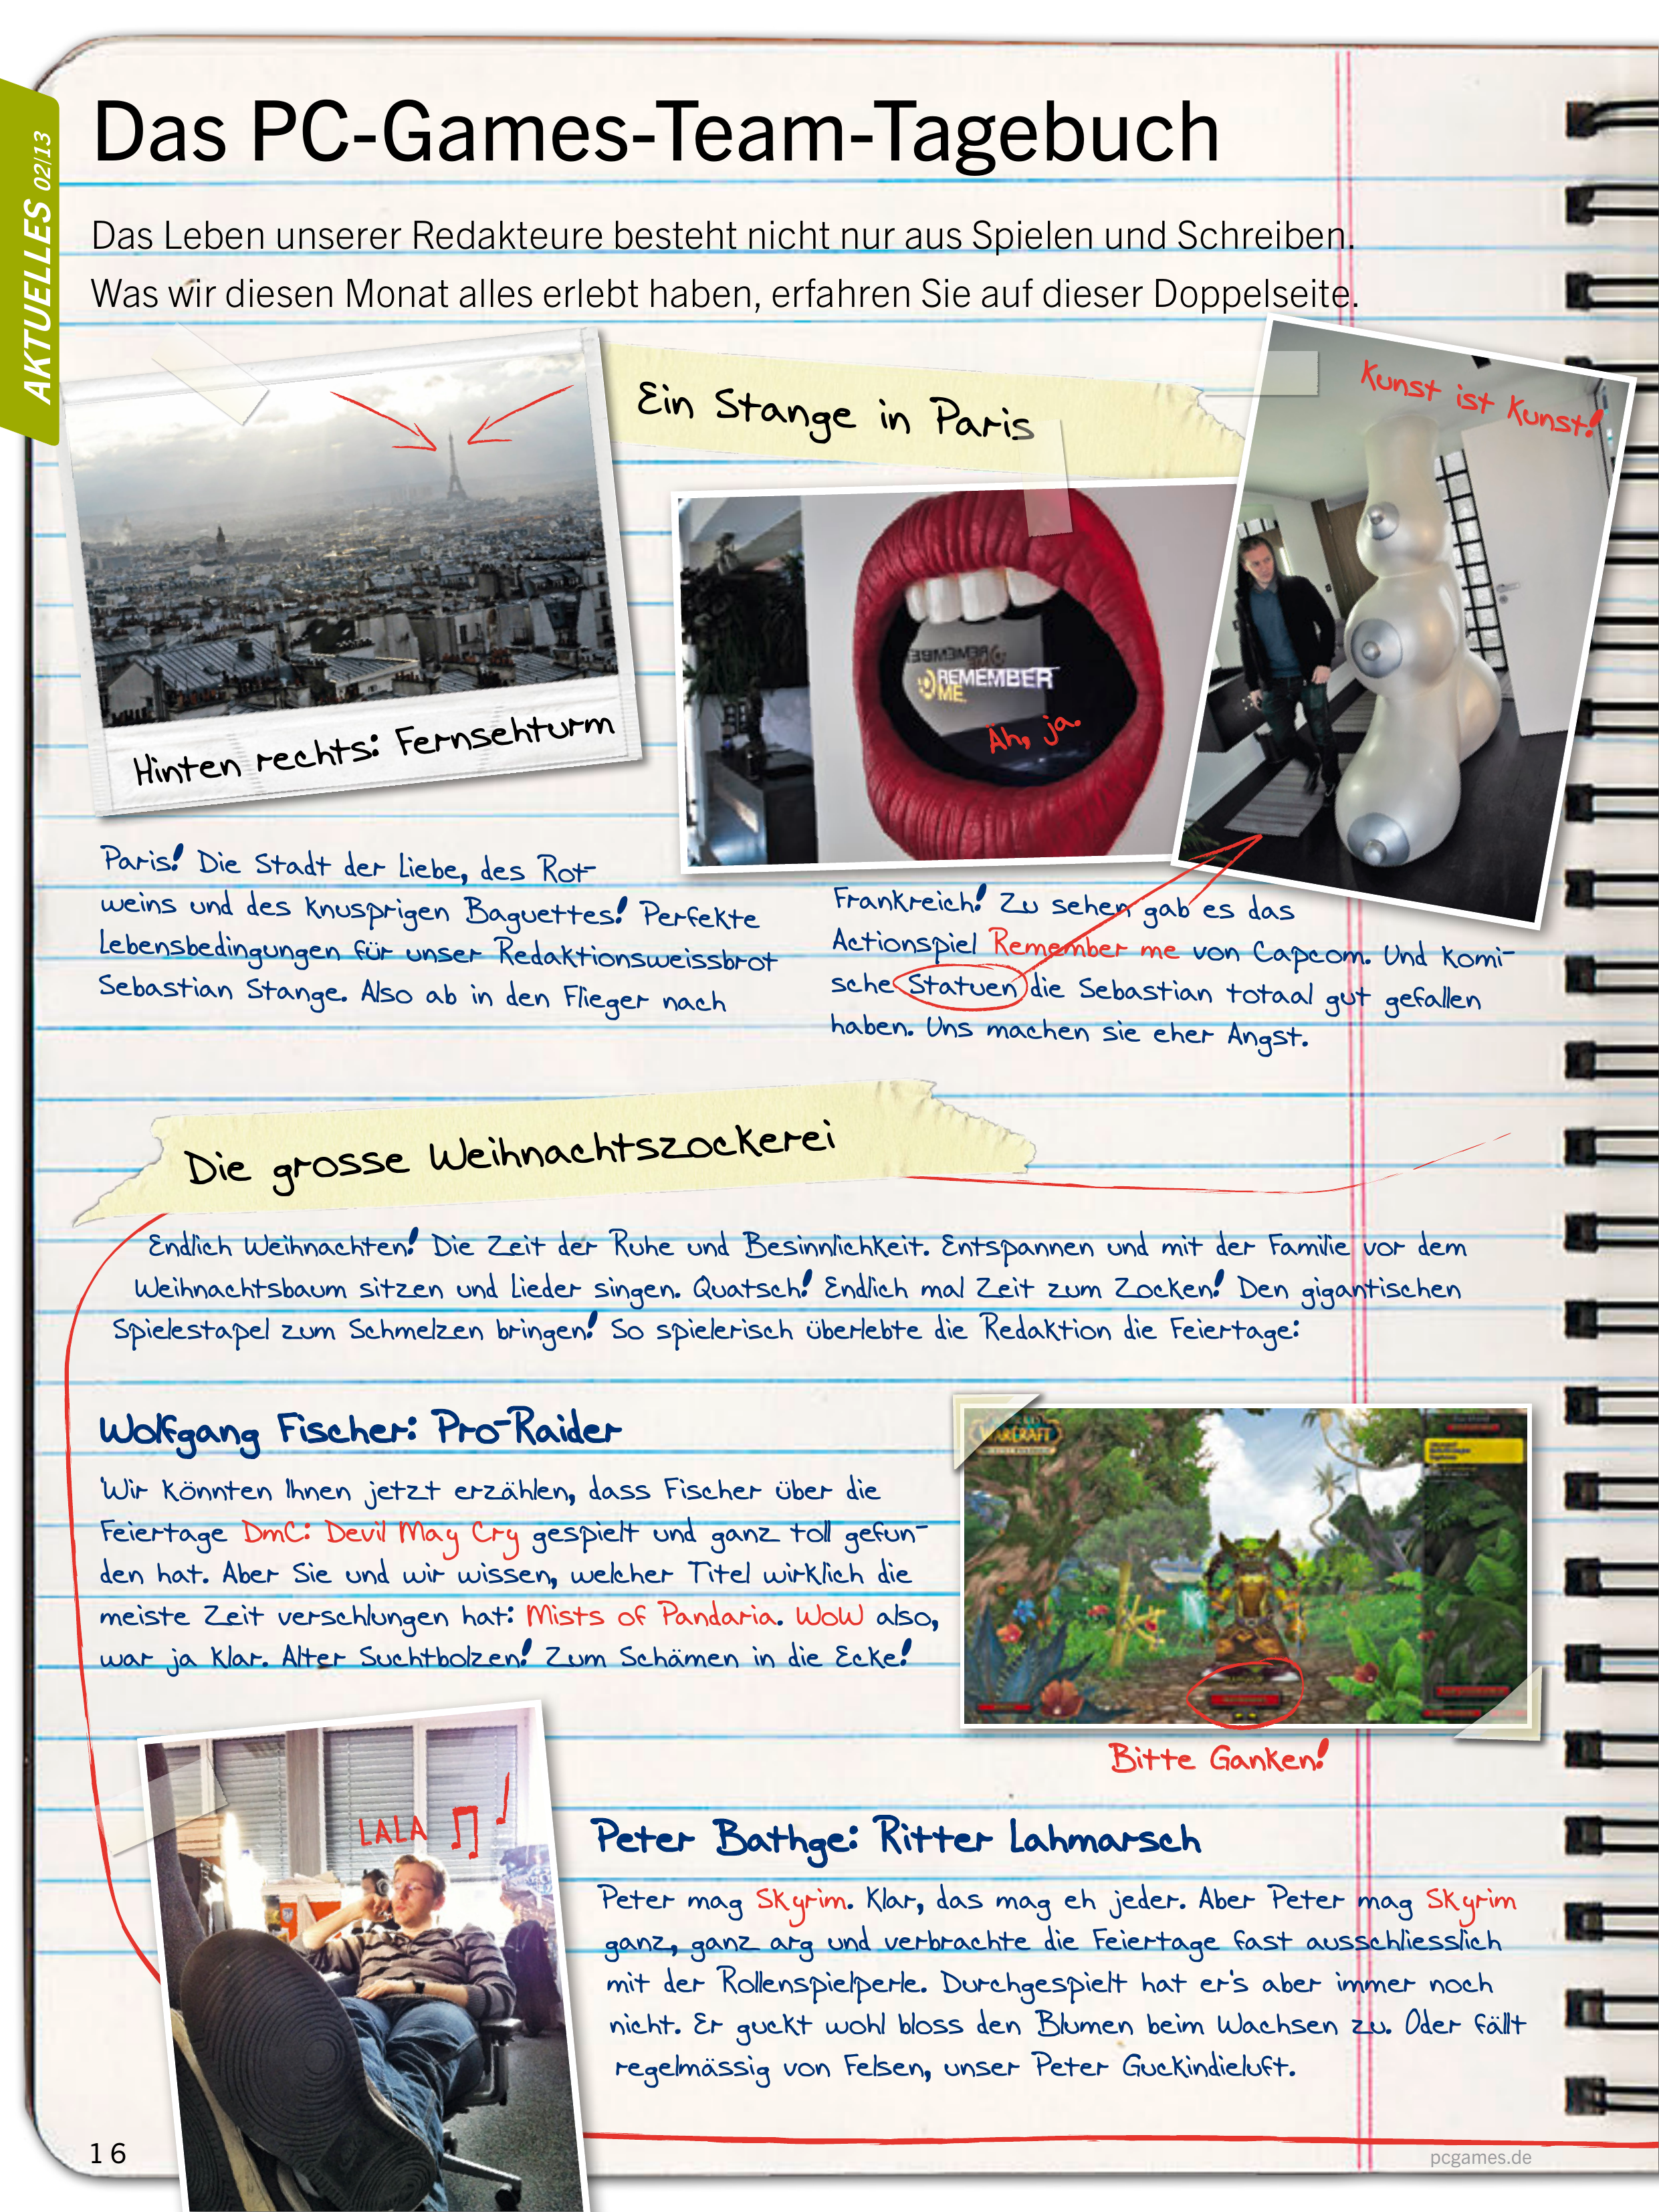 AKTUELLES 02/13
Das PC-Games-Team-Tagebuch
Das Leben unserer Redakteure besteht nicht nur aus Spielen und Schreiben.
Was wir diesen Monat alles erlebt haben, erfahren Sie auf dieser Doppelseite.
Ein Stange in Paris
Kunst ist Kunst!
REMEMBER
ME
Äh, ja.
Hinten rechts: Fernsehturm
Paris! Die Stadt der Liebe, des Rot-
weins und des knusprigen Baguettes! Perfekte
Lebensbedingungen für unser Redaktionsweissbrot
Sebastian Stange. Also ab in den Flieger nach
Frankreich! Zu sehen gab es das
Actionspiel Remember me von Capcom. Und komi-
sche Statuen die Sebastian totaal gut gefallen
haben. Uns machen sie eher Angst.
Die grosse Weihnachtszockerei
Endlich Weihnachten! Die Zeit der Ruhe und Besinnlichkeit. Entspannen und mit der Familie vor dem
Weihnachtsbaum sitzen und Lieder singen. Quatsch! Endlich mal Zeit zum Zocken! Den gigantischen
Spielestapel zum Schmelzen bringen! So spielerisch überlebte die Redaktion die Feiertage:
Wolfgang Fischer: Pro-Raider
Wir könnten Ihnen jetzt erzählen, dass Fischer über die
Feiertage DmC: Devil May Cry gespielt und ganz toll gefun-
den hat. Aber Sie und wir wissen, welcher Titel wirklich die
meiste Zeit verschlungen hat: Mists of Pandaria. WoW also,
war ja klar. Alter Suchtbolzen! Zum Schämen in die Ecke!
WARCRAFT
Bitte Ganken!
LALA
Peter Bathge: Ritter Lahmarsch
Peter mag Skyrim. Klar, das mag eh jeder. Aber Peter mag Skyrim
ganz, ganz arg und verbrachte die Feiertage fast ausschliesslich
mit der Rollenspielperle. Durchgespielt hat er's aber immer noch
nicht. Er guckt wohl bloss den Blumen beim Wachsen zu. Oder fällt
regelmässig von Felsen, unser Peter Guckindieluft.
16
pcgames.de